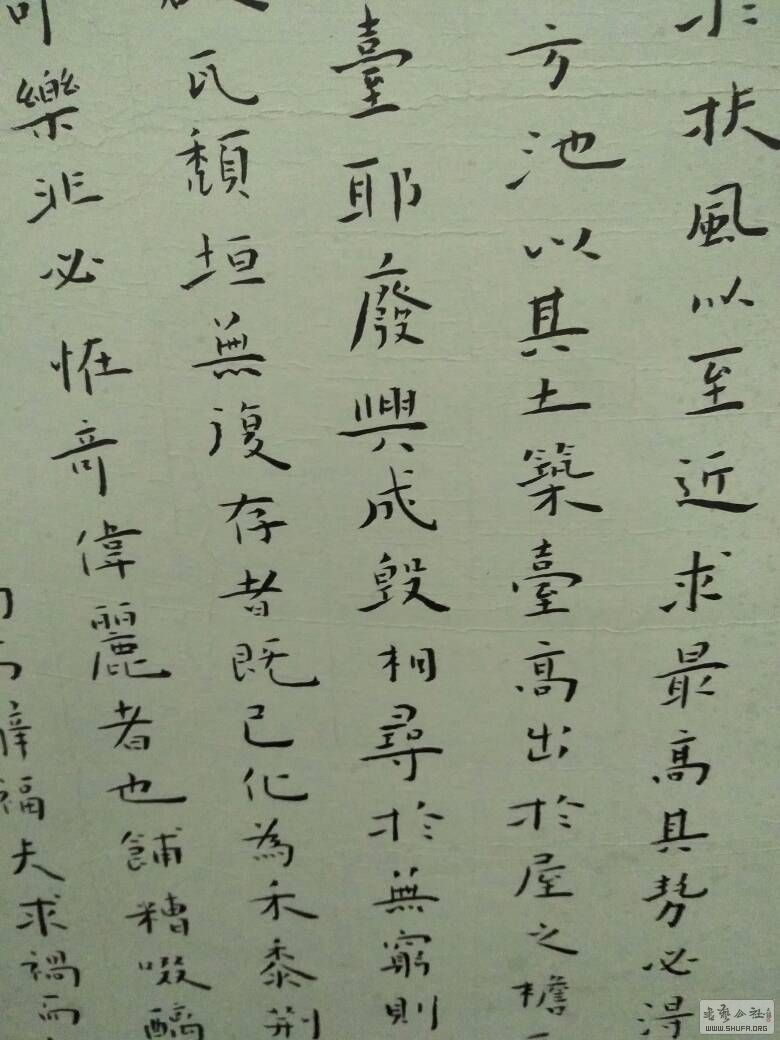 於扶風以至近求最高其勢必得
方池以其土築臺高出於屋之檐
臺耶廢興成毀相尋於無窮則
瓦頹垣無復存者既已化為禾黍荆
可樂非必恠奇偉麗者也餔糟啜醨
辭福夫求禍而
書藝公社
WWW.SHUFA.ORG